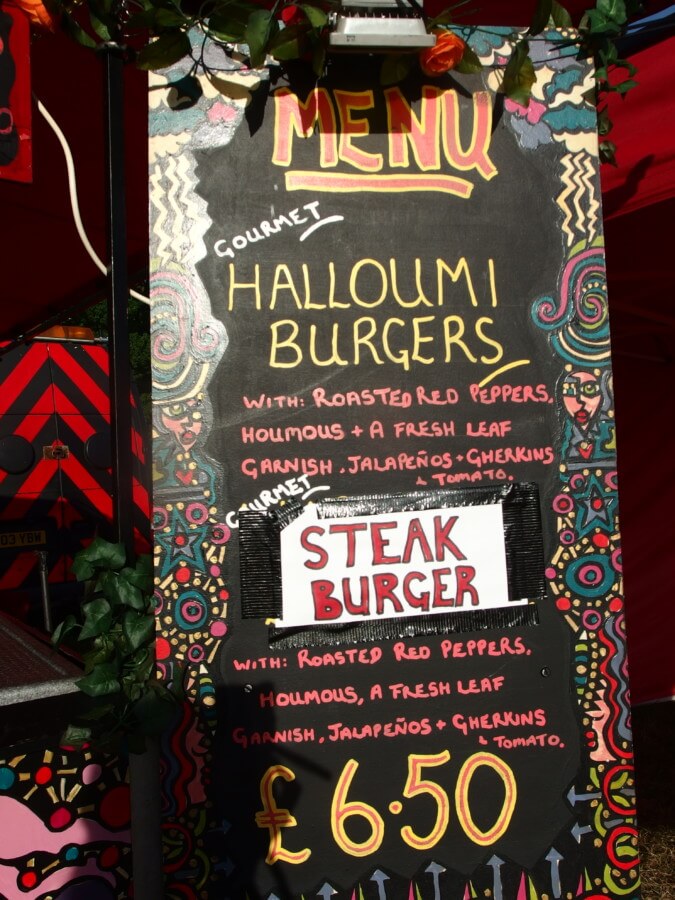 MENU
GOURMET
HALLOUMI
BURGERS
WITH: ROASTED RED PEPPERS,
HOUMOUS + A FRESH LEAF
GARNISH, JALAPEÑOS + GHERKINS
& TOMATO.
GOURMET
STEAK
BURGER
WITH: ROASTED RED PEPPERS,
HOUMOUS, A FRESH LEAF
GARNISH, JALAPEÑOS + GHERKINS
& TOMATO.
£6.50
03 YBW